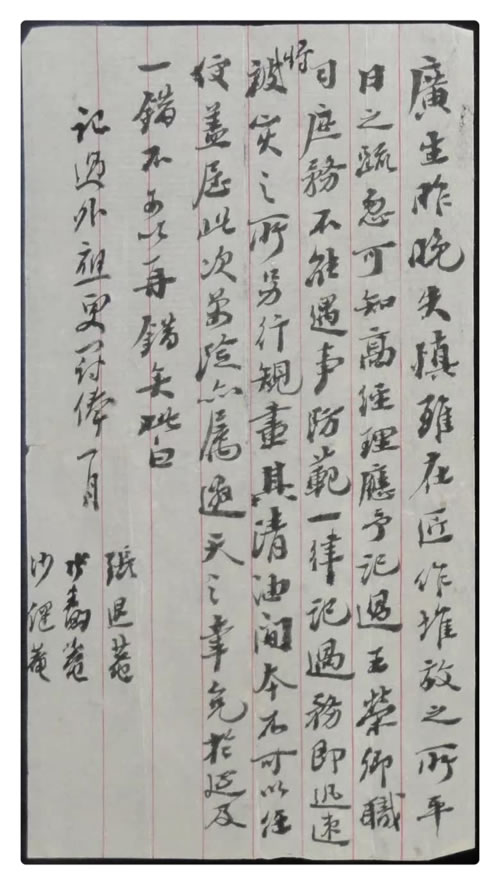 廣生昨晚失慎雖在近作堆放之所平
日之疏忽可知高經理應予記過王榮卿職
司庶務不能遇事防範一律記過務即迅速將
被災之所另行規畫其清油間本不可以任
便蓋屋此次萬險亦屬邀天之幸免於延及
一錯不可以再錯矣此白
記過外經更罰俸一月
張退菴
沙健菴